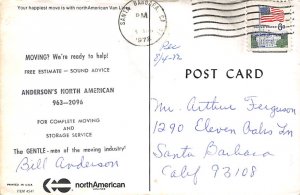 Your happiest move is with northAmerican Van Lines
SANTA BARBARA, CA
PM
1972
MOVING? We're ready to help!
FREE ESTIMATE - SOUND ADVICE
ANDERSON'S NORTH AMERICAN
963-2096
FOR COMPLETE MOVING
AND
STORAGE SERVICE
The GENTLE-men of the moving industry
Bill Anderson
PRINTED IN U.S.A.
northAmerican
Rec
POST CARD
Mr. Arthur Ferguson
1290 Eleven Oaks Ln
Santa Barbara
Calif 93108